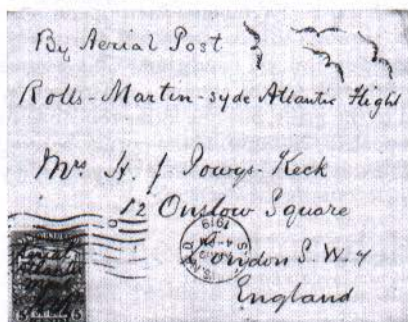 By Aerial Post
Rolls-Martin-syde Atlantic Flight
Mrs H. J. Powys-Keck
12 Onslow Square
London S.W. 7
England
1919
5